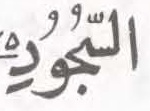 السُّجُوْدِ